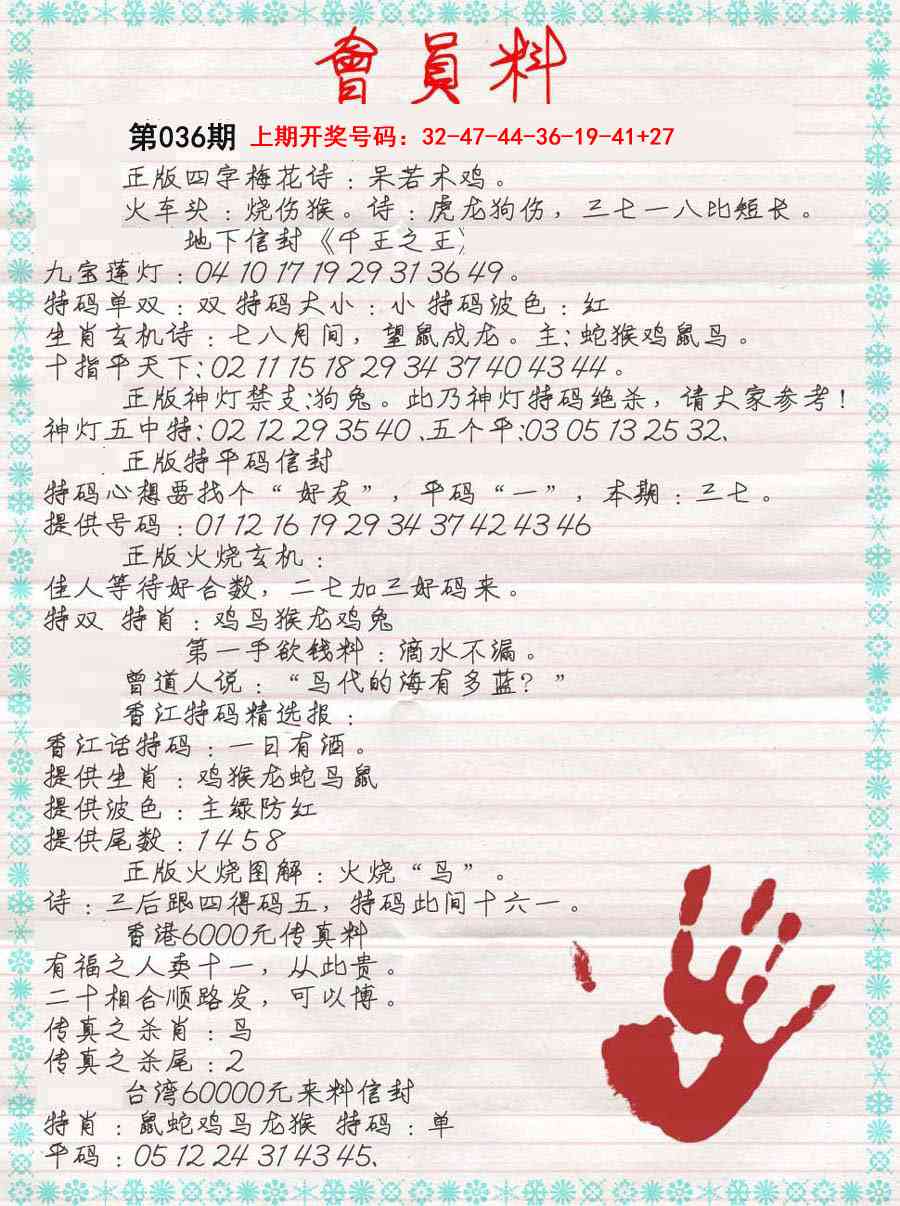 會員料
第036期 上期开奖号码：32-47-44-36-19-41+27
正版四字梅花诗：呆若木鸡。
火车头：烧伤猴。诗：虎龙狗伤，三七一八比短长。
地下信封《千王之王》
九宝莲灯：04 10 17 19 29 31 36 49。
特码单双：双 特码大小：小 特码波色：红
生肖玄机诗：七八月间，望鼠成龙。主：蛇猴鸡鼠鸟。
十指平天下：02 11 15 18 29 34 37 40 43 44。
正版神灯禁支：狗兔。此乃神灯特码绝杀，请大家参考！
神灯五中特：02 12 29 35 40、五个平：03 05 13 25 32、
正版特平码信封
特码心想要找个“好友”，平码“一”，本期：三七。
提供号码：01 12 16 19 29 34 37 42 43 46
正版火烧玄机：
佳人等待好合数，二七加三好码来。
特双 特肖：鸡鸟猴龙鸡兔
第一手欲钱料：滴水不漏。
曾道人说：“鸟代的海有多蓝？”
香江特码精选报：
香江话特码：一日有酒。
提供生肖：鸡猴龙蛇鸟鼠
提供波色：主绿防红
提供尾数：1 4 5 8
正版火烧图解：火烧“鸟”。
诗：三后跟四得码五，特码此间十六一。
香港6000元传真料
有福之人卖十一，从此贵。
二十相合顺路发，可以博。
传真之杀肖：鸟
传真之杀尾：2
台湾60000元来料信封
特肖：鼠蛇鸡鸟龙猴 特码：单
平码：05 12 24 31 43 45、